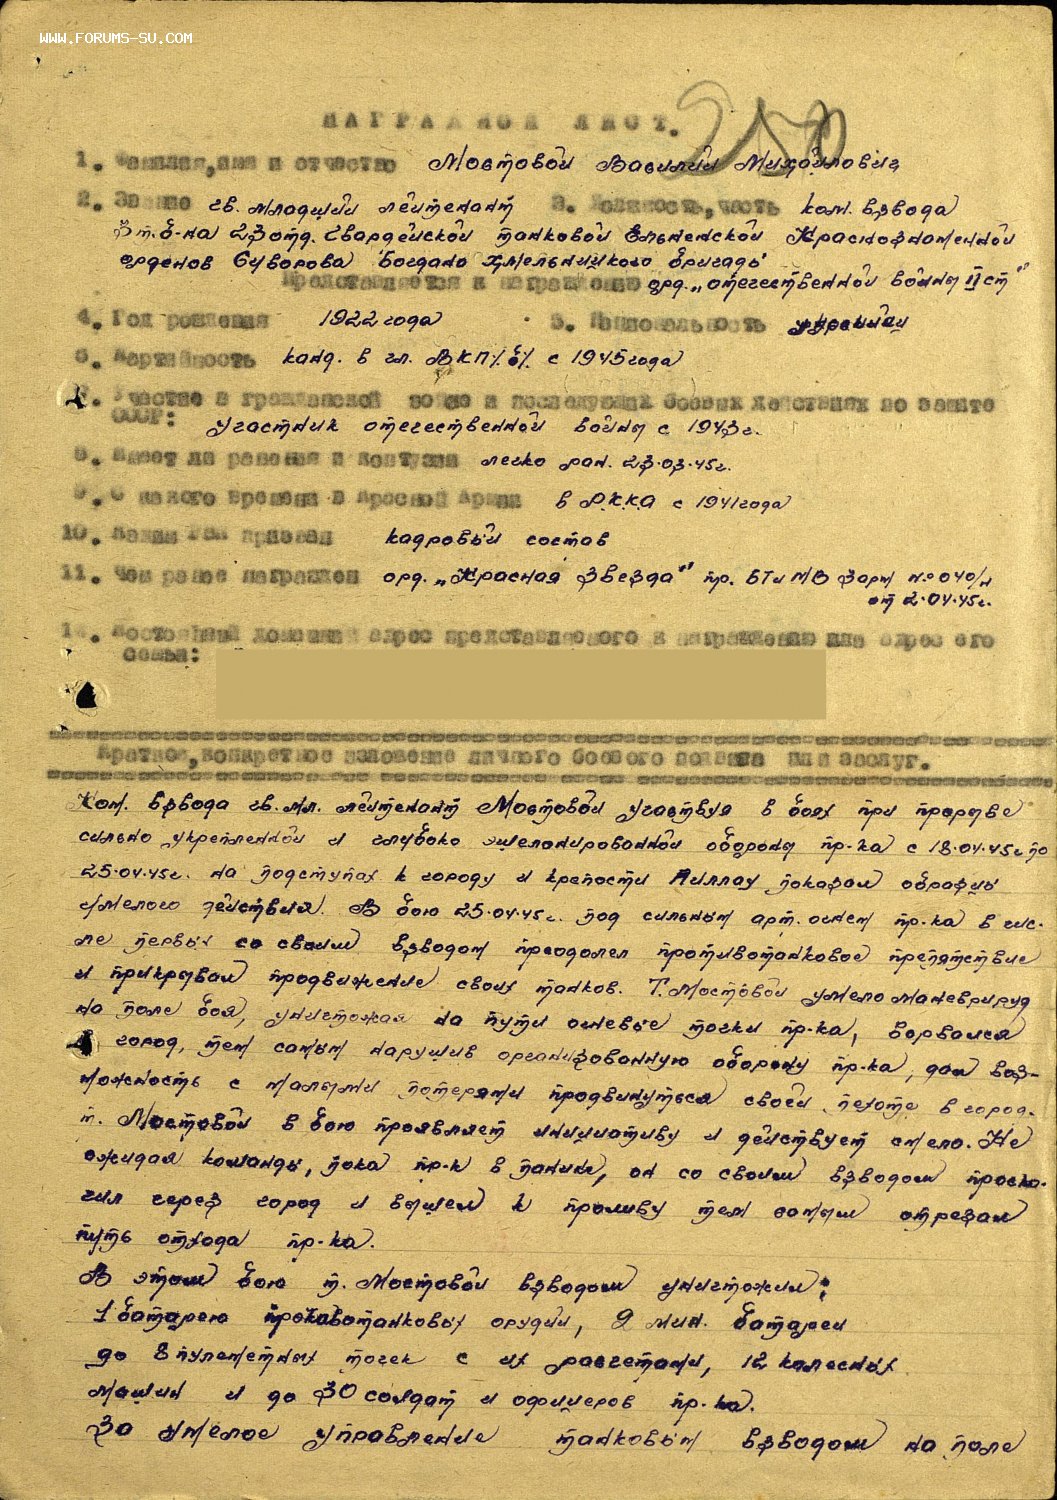 WWW.FORUMS-SU.COM
НАГРАДНОЙ ЛИСТ.
250
1. Фамилия, имя и отчество Мостовой Василий Михайлович
2. Звание гв. младший лейтенант 3. Должность, часть ком. взвода
3 т. б-на 23 отд. Гвардейской танковой Ельненской Краснознаменной
орденов Суворова Богдана Хмельницкого бригады
Представляется к награждению орд. „отечественной войны II ст"
4. Год рождения 1922 года 5. Национальность украинец
6. Партийность канд. в чл. ВКП/б/ с 1945 года
7. Участие в гражданской войне и последующих боевых действиях по защите
СССР: участник отечественной войны с 1943 г.
8. Имеет ли ранения и контузии легко ран. 23.03.45г.
9. С какого времени в Красной Армии в Р.К.К.А с 1941 года
10. Каким РВК призван кадровый состав
11. Чем ранее награжден орд. „Красная Звезда" пр. БТ и МВ 3 арм № 040/н
от 2.04.45г.
12. Постоянный домашний адрес представляемого к награждению или адрес его
семьи:
Краткое, конкретное изложение личного боевого подвига или заслуг.
Ком. взвода гв. мл. лейтенант Мостовой участвуя в боях при прорыве
сильно укрепленной и глубоко эшелонированной обороны пр-ка с 18.04.45г по
25.04.45г. на подступах к городу и крепости Пиллау показал образцы
умелого действия. В бою 25.04.45г. под сильным арт. огнем пр-ка в чис-
ле первых со своим взводом преодолел противотанковое препятствие
и прикрывал продвижение своих танков. Т. Мостовой умело маневрируя
на поле боя, уничтожая на пути огневые точки пр-ка, ворвался
в город, тем самым нарушив организованную оборону пр-ка, дал воз-
можность с малыми потерями продвинуться своей пехоте в город.
т. Мостовой в бою проявляет инициативу и действует смело. Не
ожидая команды, пока пр-к в панике, он со своим взводом проско-
чил через город и вышел к проливу тем самым отрезал
путь отхода пр-ка.
В этом бою т. Мостовой взводом уничтожил:
1 батарею противотанковых орудий, 2 мин. батареи
до 8 пулеметных точек с их расчетами, 12 колесных
машин и до 30 солдат и офицеров пр-ка.
За умелое управление танковым взводом на поле